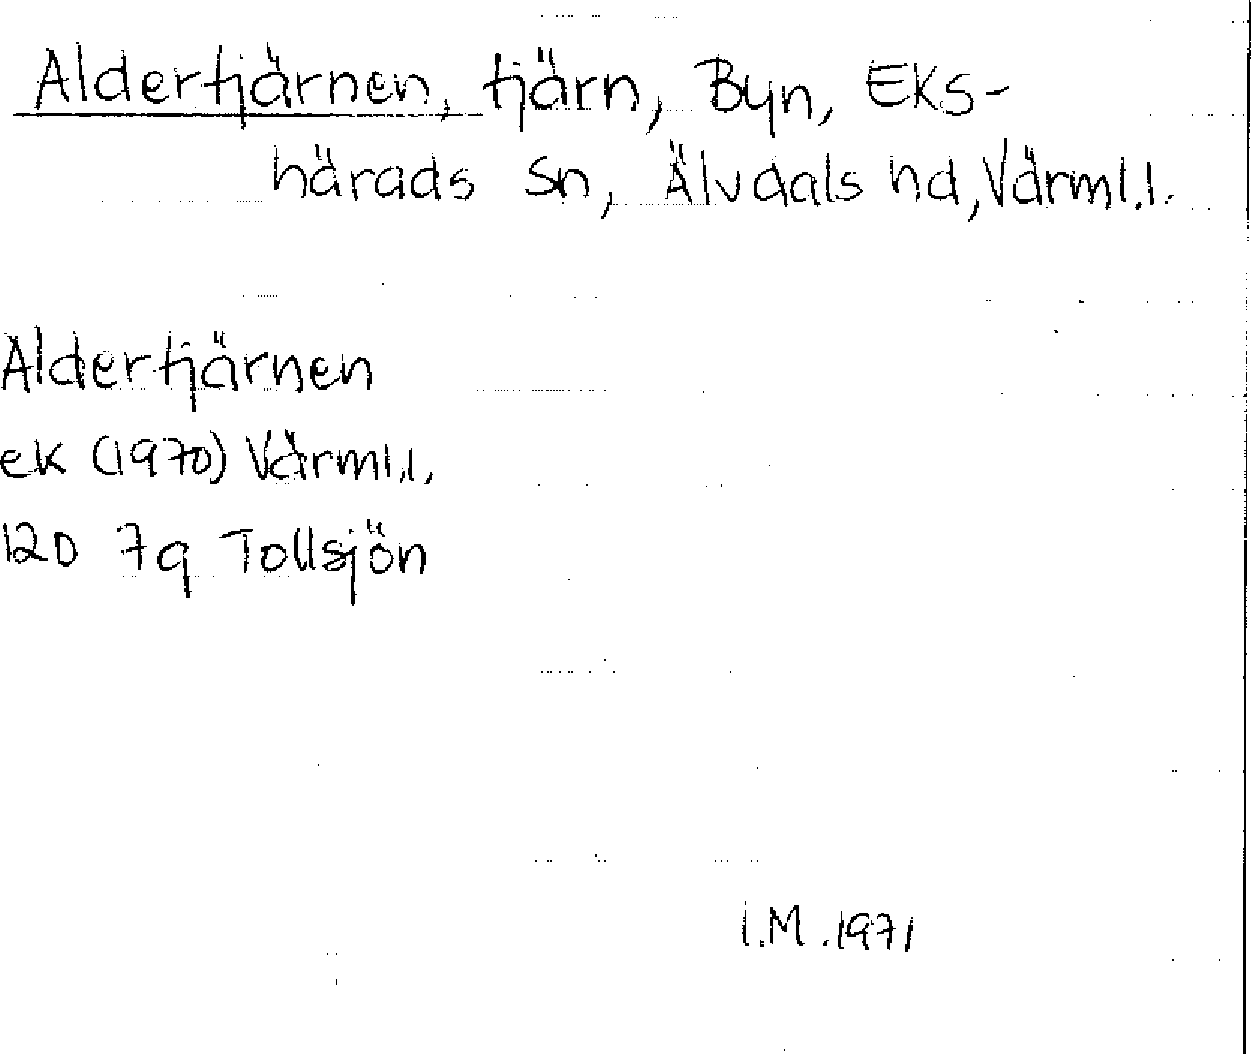 Aldertjärnen, tjärn, Byn, Eks-
härads sn, Älvdals hd, Värml.l.
Aldertjärnen
ek (1970) Värml.l.
12D 7g Tollsjön
I.M. 1971